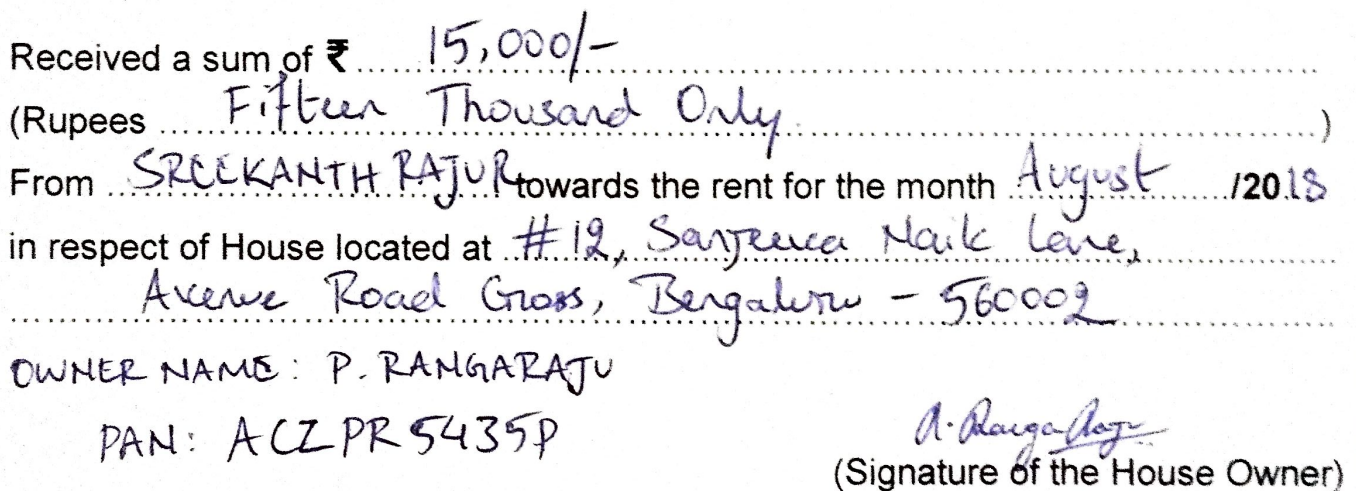 Received a sum of ₹ 15,000/-
(Rupees Fifteen Thousand Only )
From SREEKANTH RAJUR towards the rent for the month August /2018
in respect of House located at #12, Sanjeeva Naik Lane,
Avenue Road Cross, Bengaluru - 560002
OWNER NAME: P. RANGARAJU
PAN: ACZPR5435P
(Signature of the House Owner)